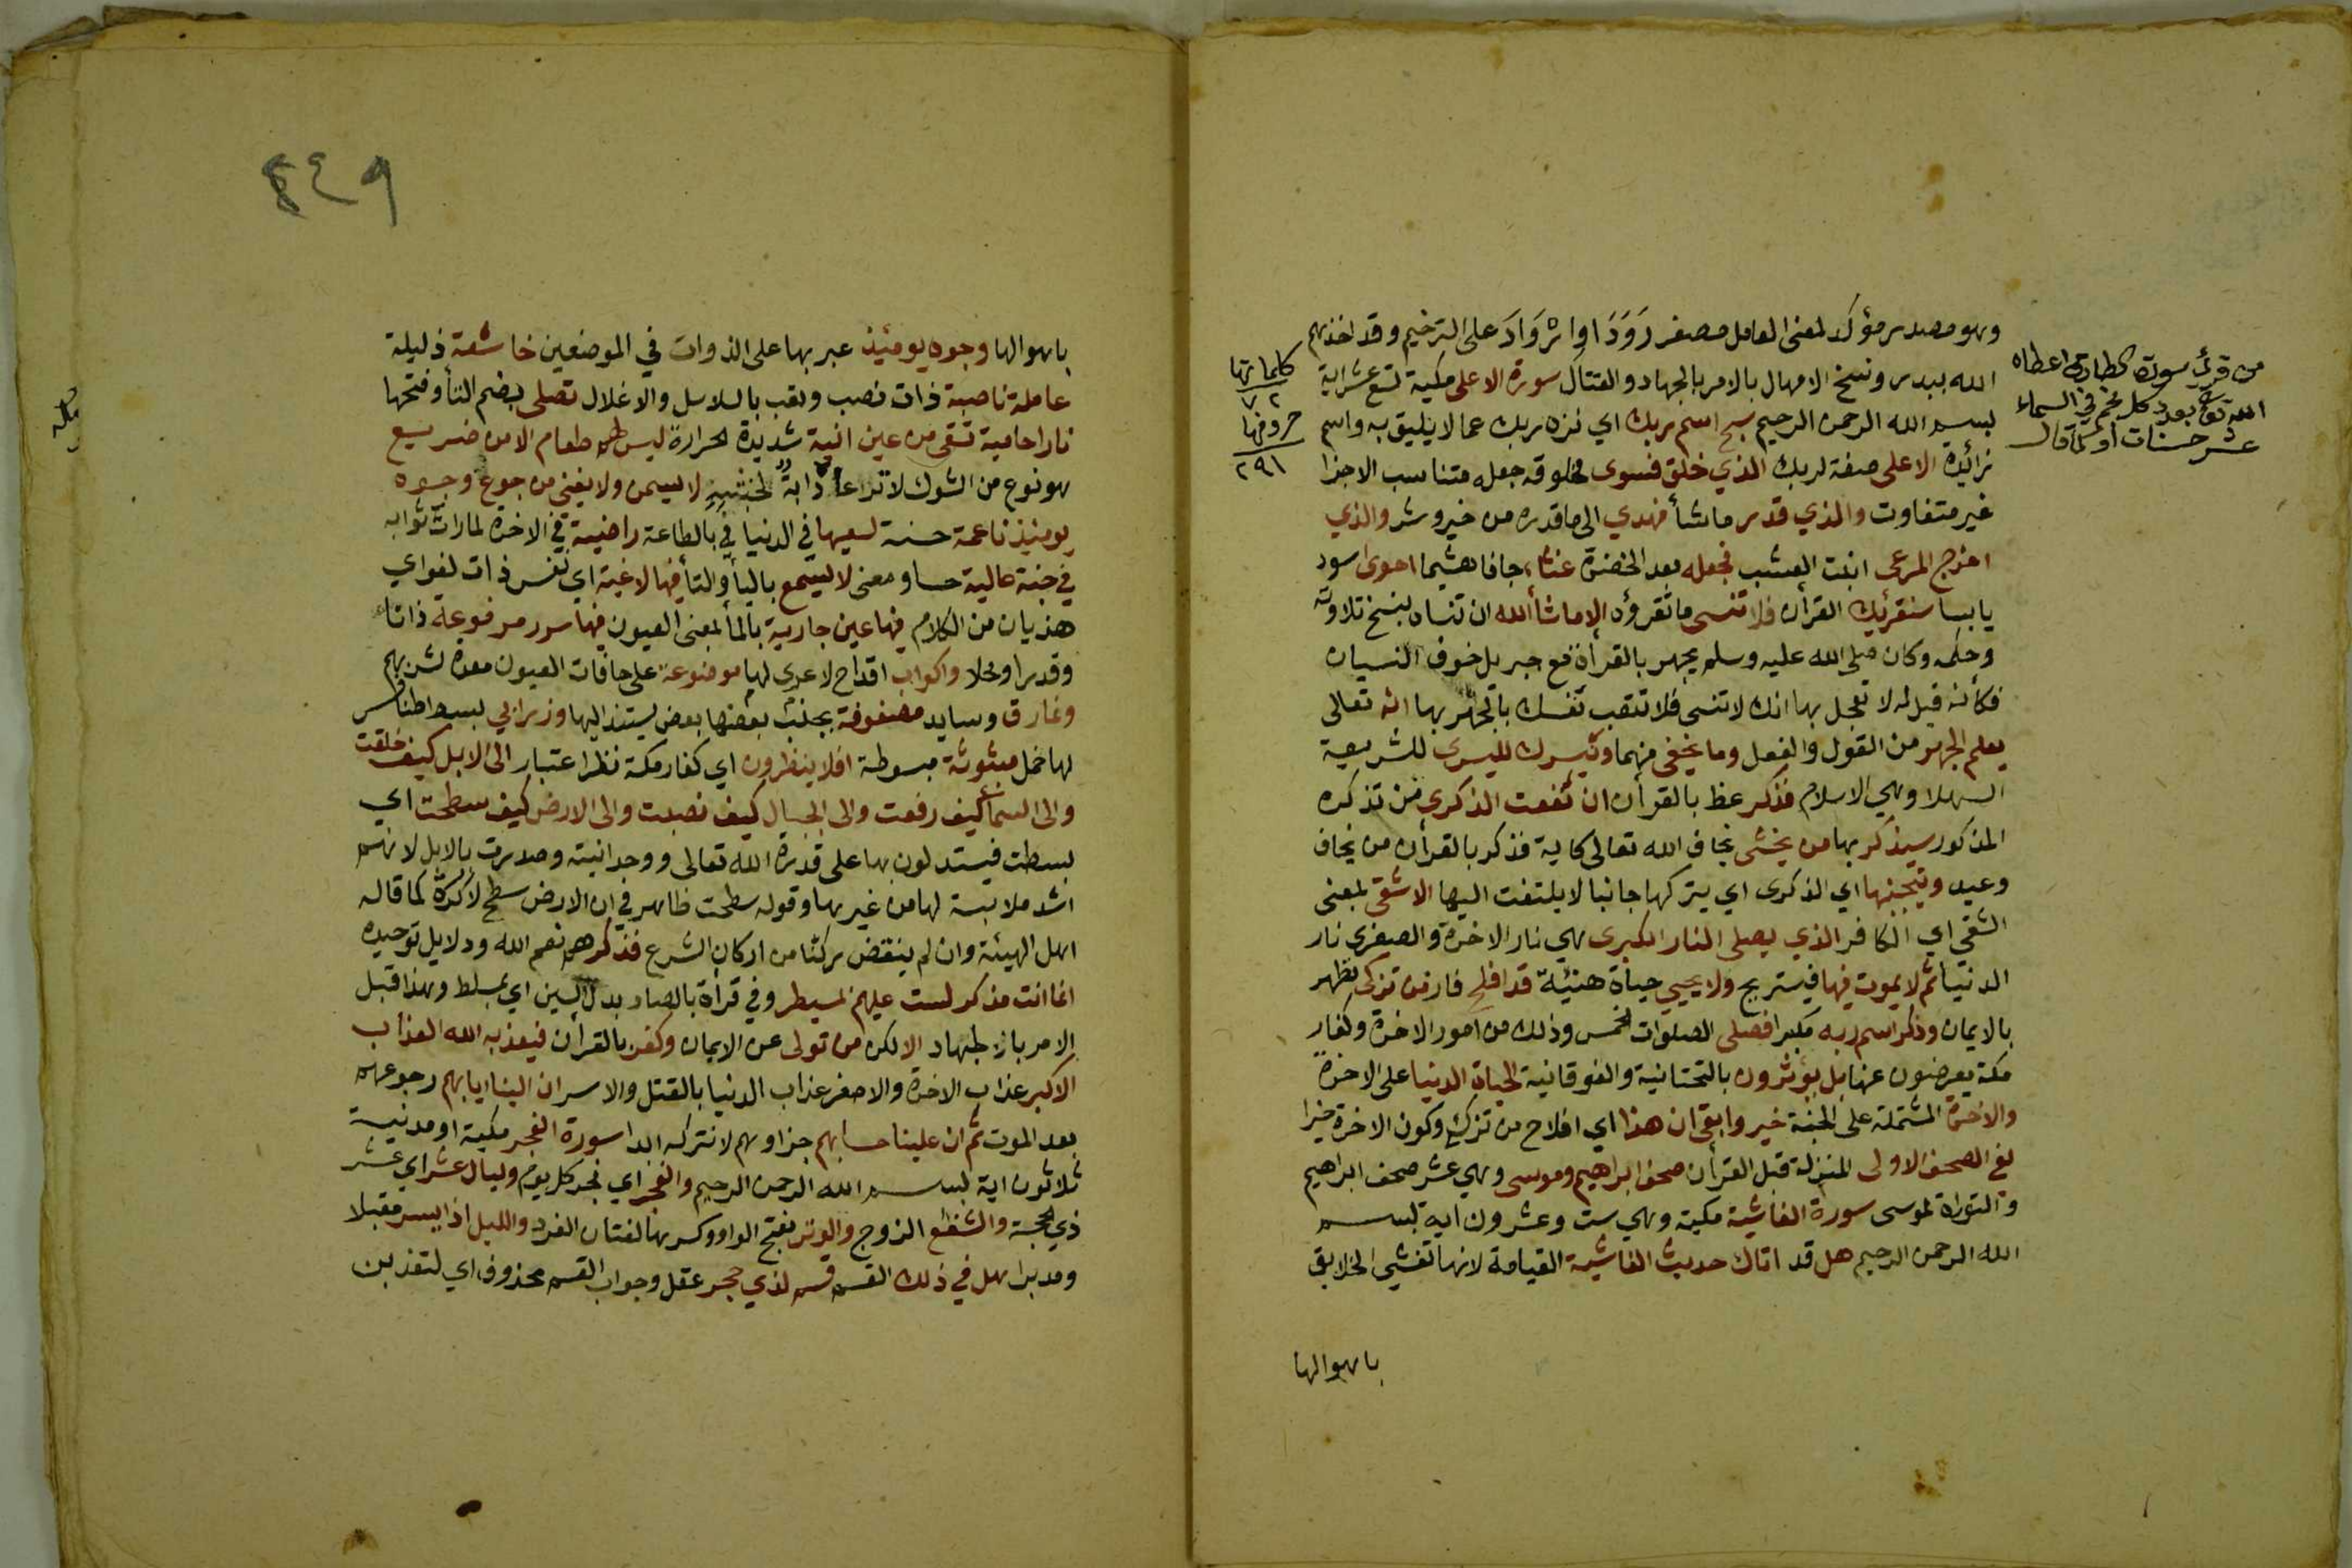 وهو مصدر مؤكد لمعنى العامل مصغر رَوَدَا او اِرْوَادَ على الترخيم وقد اخذهم
الله ببدر ونسخ الامهال بالامر بالجهاد والقتال سورة الاعلى مكية تسع عشراية
بسم الله الرحمن الرحيم سبح اسم ربك اي نزه ربك عما لا يليق به واسم
زائدة الاعلى صفة لربك الذي خلق فسوى مخلوقه جعله متناسب الاجزا
غير متفاوت والذي قدر ما شأ فهدي الى ما قدره من خير وشر والذي
اخرج المرعى انبت العشب فجعله بعد الخضرة غثاء جافا هشيما احوى اسود
يابسا سنقرئك القرأن فلا تنسى ما تقرؤه الا ما شأ الله ان تنساه بنسخ تلاوته
وحكمه وكان صلى الله عليه وسلم يجهر بالقرأة مع جبريل خوف النسيان
فكأنه قيل له لا تعجل بها انك لا تنسى فلا تتعب نفسك بالجهر بها انه تعالى
يعلم الجهر من القول والفعل وما يخفى منهما ونيسرك لليسرى للشريعة
السهلا وهي الاسلام فذكر عظ بالقرأن ان نفعت الذكرى من تذكره
المذكور سيذكر بها من يخشى يخاف الله تعالى كاية فذكر بالقرأن من يخاف
وعيد ويتجنبها اي الذكرى اي يتركها جانبا لا يلتفت اليها الاشقى بمعنى
الشقي اي الكافر الذي يصلى النار الكبرى هي نار الاخرة والصغرى نار
الدنيا ثم لا يموت فيها فيستريح ولا يحيي حياة هنيئة قد افلح فاز من تزكى تطهر
بالايمان وذكر اسم ربه مكبرا فصلى الصلوات الخمس وذلك من امور الاخرة وكفار
مكة يعرضون عنها بل يؤثرون بالتحتانية والفوقانية الحياة الدنيا على الاخرة
والاخرة المشتملة على الجنة خير وابقى ان هذا اي افلاح من تزكى وكون الاخرة خيرا
لفي الصحف الاولى المنزلة قبل القرأن صحف ابراهيم وموسى وهي عشر صحف ابراهيم
والتوراة لموسى سورة الغاشية مكية وهي ست وعشرون اية بسم
الله الرحمن الرحيم هل قد اتاك حديث الغاشية القيامة لانها تغشي الخلايق
باهوالها
من قرئ سورة الطارق اعطاه
الله تعالى بعدد كل نجم في السماء
عشر حسنات او كما قال
كلماتها
٧٢
حروفها
٢٩١
٤٤٩
باهوالها وجوه يومئذ عبر بها على الذوات في الموضعين خاشعة ذليلة
عاملة ناصبة ذات نصب وتعب بالسلاسل والاغلال تصلى بضم التأ وفتحها
نارا حامية تسقى من عين انية شديدة الحرارة ليس لهم طعام الا من ضريع
هو نوع من الشوك لا ترعاه دابة لخبثه لا يسمن ولا يغني من جوع وجوه
يومئيذ ناعمة حسنة لسعيها في الدنيا بالطاعة راضية في الاخرة لما رات ثوابه
في جنة عالية حسا ومعنى لا يسمع باليأ والتأ فيها لاغية اي نفس ذات لغو اي
هذيان من الكلام فيها عين جارية بالمأ بمعنى العيون فيها سرر مرفوعة ذاتا
وقدرا ومحلا واكواب اقداح لا عرى لها موضوعة على حافات العيون معدة لشربهم
ونمارق وسايد مصفوفة بجنب بعضها بعض يستند اليها وزرابي بسط طنافس
لها خمل مبثوثة مبسوطة افلا ينظرون اي كفار مكة نظر اعتبار الى الابل كيف خلقت
والى السمأ كيف رفعت والى الجبال كيف نصبت والى الارض كيف سطحت اي
بسطت فيستدلون بها على قدرة الله تعالى ووحدانيته وصدرت بالابل لانهم
اشد ملابسة لها من غيرها وقوله سطحت ظاهر في ان الارض سطح لا كرة كما قاله
اهل الهيئة وان لم ينقض ركنا من اركان الشرع فذكر هم نعم الله ودلايل توحيده
انما انت مذكر لست عليهم بمسيطر وفي قرأة بالصاد بدل السين اي بمسلط وهذا قبل
الامر بالجهاد الا لكن من تولى عن الايمان وكفر بالقرأن فيعذبه الله العذاب
الاكبر عذاب الاخرة والاصغر عذاب الدنيا بالقتل والاسر ان الينا ايابهم رجوعهم
بعد الموت ثم ان علينا حسابهم جزاوهم لا نتركه ابدا سورة الفجر مكية او مدنية
ثلاثون اية بسم الله الرحمن الرحيم والفجر اي فجر كل يوم وليال عشر اي عشر
ذي الحجة والشفع الزوج والوتر بفتح الواو وكسرها لغتان الفرد والليل اذا يسر مقبلا
ومدبرا هل في ذلك القسم قسم لذي حجر عقل وجواب القسم محذوف اي لتعذبن